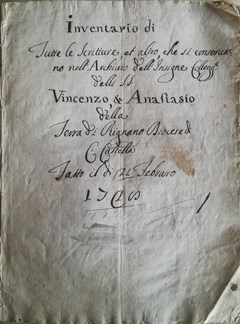 Inventario di
Tutte le Scritture, et altro, che si conserva
no nell'Archivio dell'Insigne Colleg.
delli SS.
Vincenzo & Anastasio
della
Terra di Rignano Diocese di
C. Castella
Fatto il dì Febraro